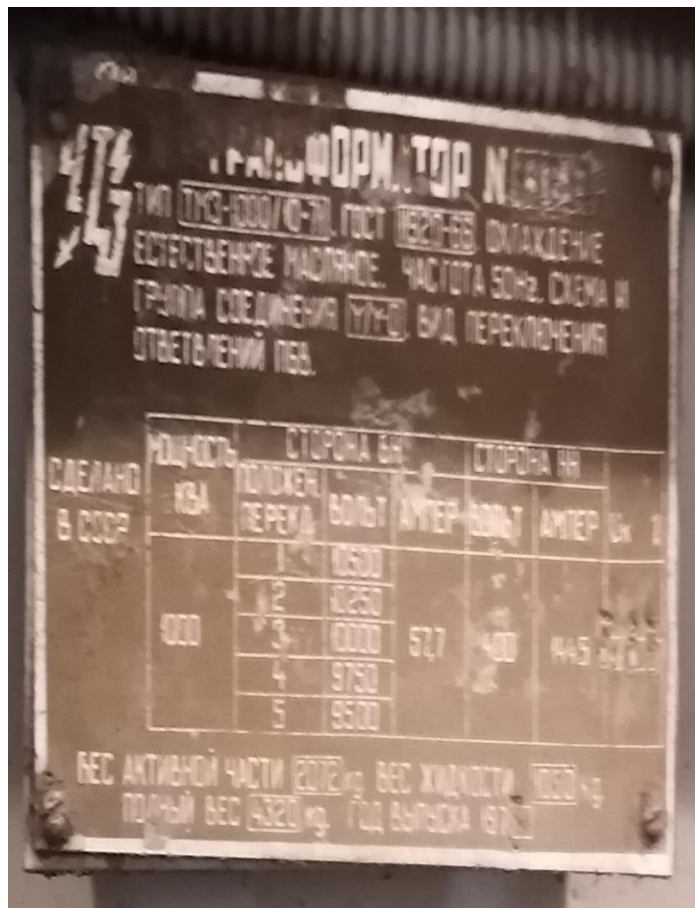 ТРАНСФОРМАТОР N
ТИП ТМЗ-1000/10-71. ГОСТ 11920-66. ОХЛАЖДЕНИЕ
ЕСТЕСТВЕННОЕ МАСЛЯНОЕ. ЧАСТОТА 50Hz. СХЕМА И
ГРУППА СОЕДИНЕНИЯ Y/Y-0. ВИД ПЕРЕКЛЮЧЕНИЯ
ОТВЕТВЛЕНИЙ ПБВ.
СДЕЛАНО
В СССР
МОЩНОСТЬ КВА СТОРОНА ВН СТОРОНА НН Uк
ПОЛОЖЕН. ПЕРЕКЛ. ВОЛЬТ АМПЕР ВОЛЬТ АМПЕР
1 10500
2 10250
1000 3 10000 57,7 400 1445
4 9750
5 9500
ВЕС АКТИВНОЙ ЧАСТИ 2072 kg. ВЕС ЖИДКОСТИ 1050 kg.
ПОЛНЫЙ ВЕС 4320 kg. ГОД ВЫПУСКА